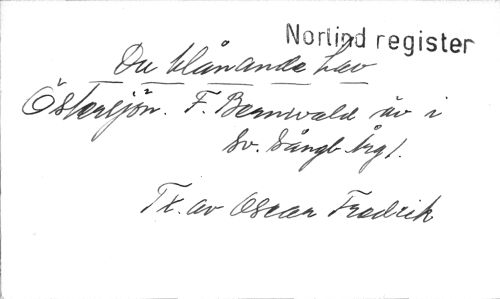 Norlind register
Du blånande hav
Östersjön². F. Bernwald äv i
Sv. Sångb. årg 1.
Tx. av Oscar Fredrik